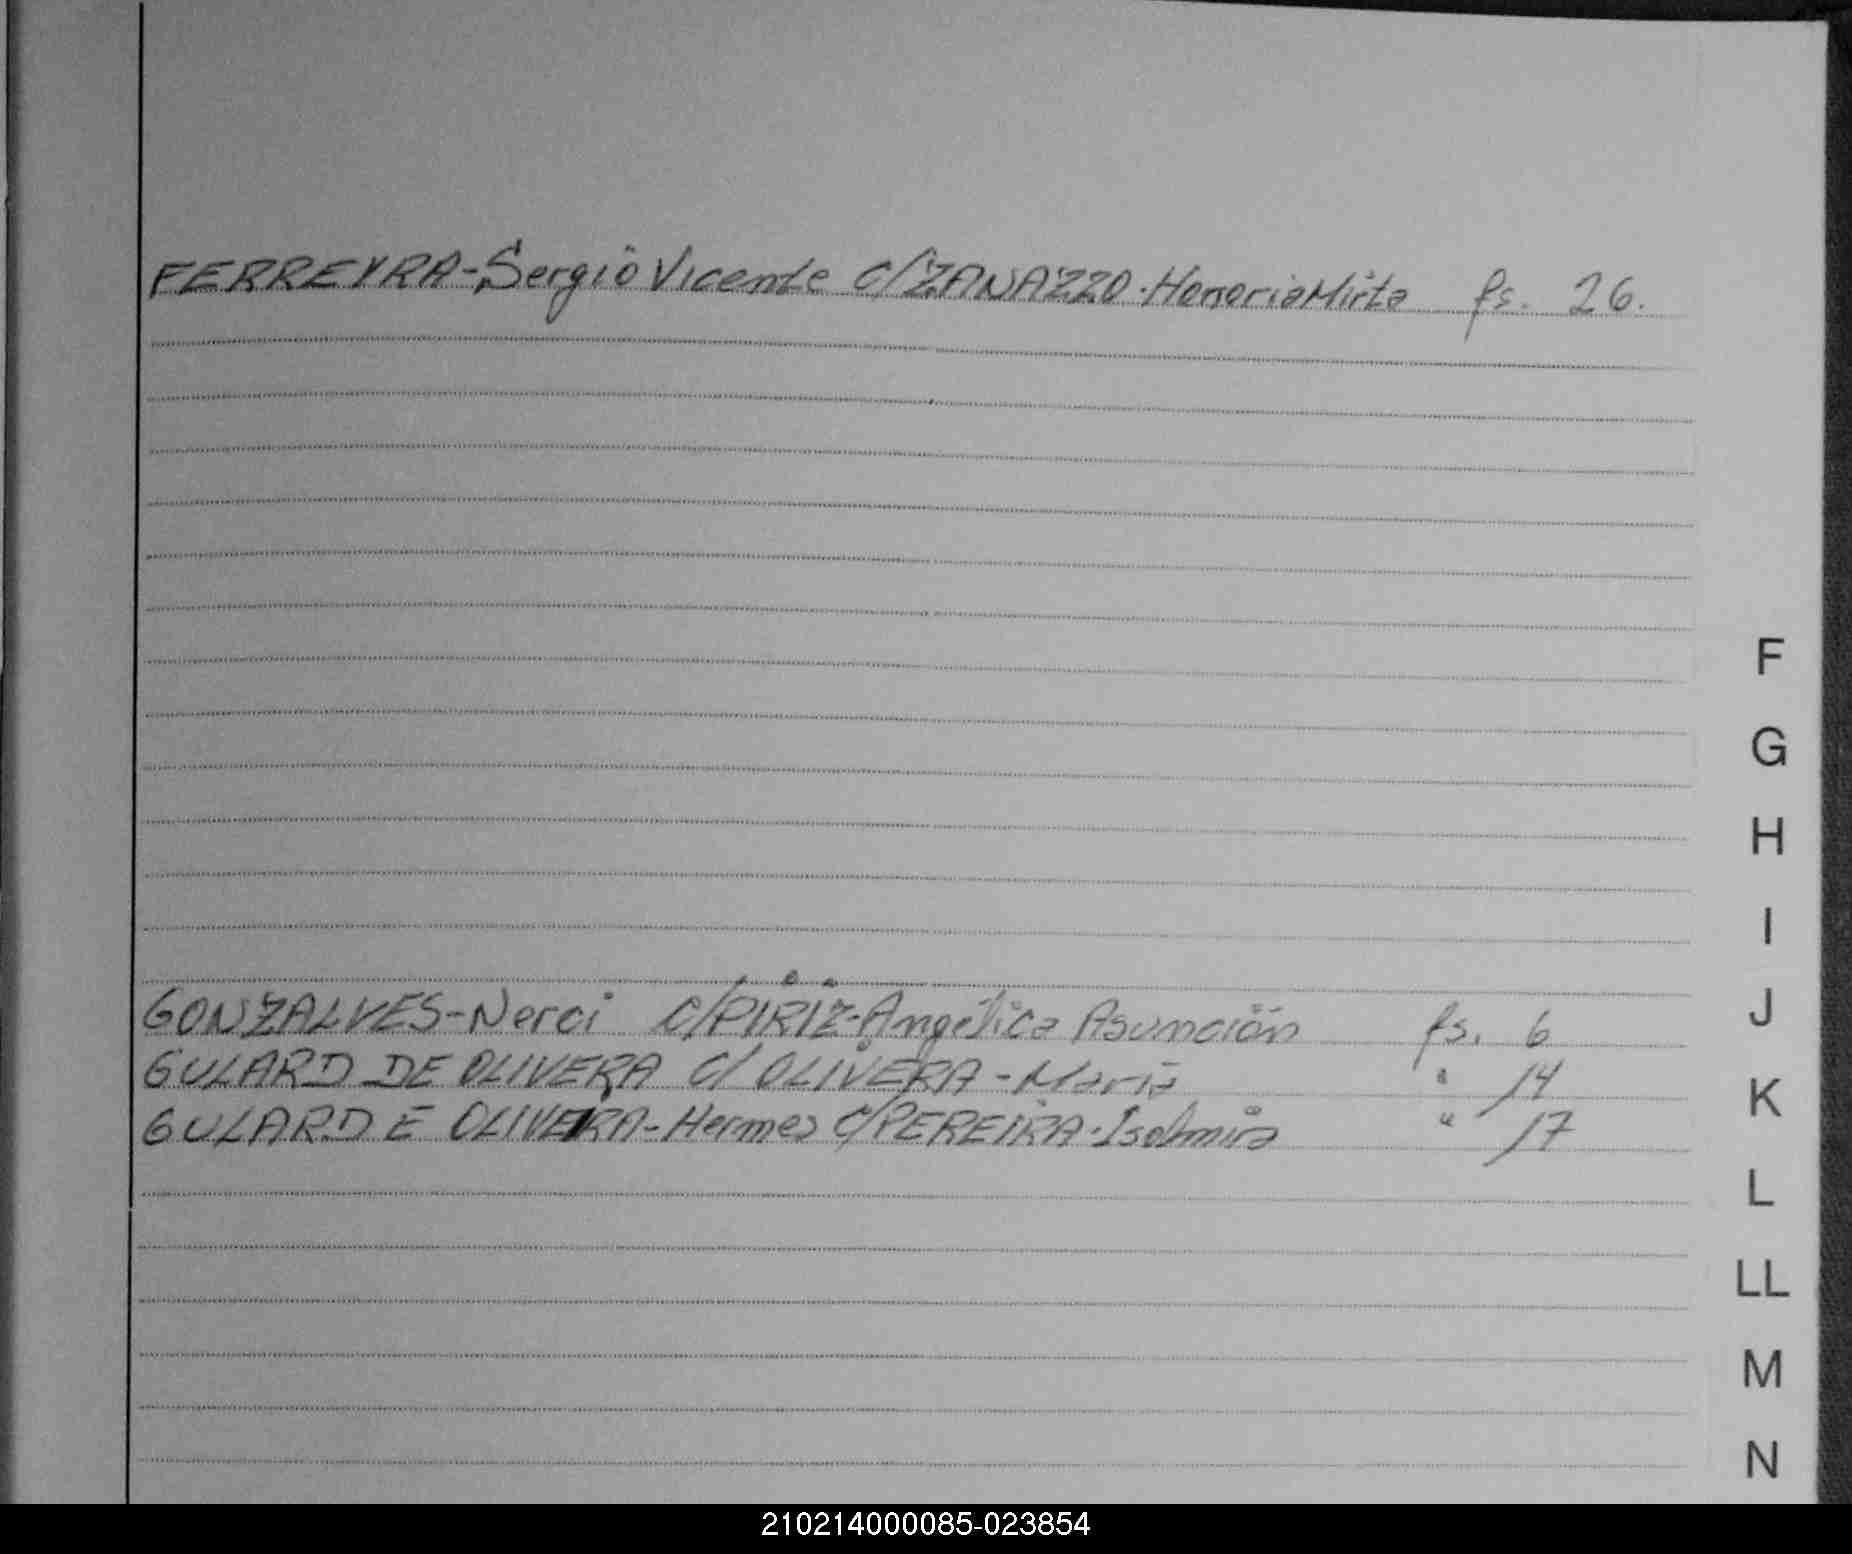 FERREYRA-Sergio Vicente C/ZANAZZO-Honoria Mirta fs. 26.
F
G
H
I
GONZALVES-Nerci C/PIRIZ-Angélica Asunción fs. 6
J
GULARD DE OLIVERA C/ OLIVERA-María " 14
K
GULARD E OLIVERA-Hermes C/PEREIRA-Isolmira " 17
L
LL
M
N
210214000085-023854